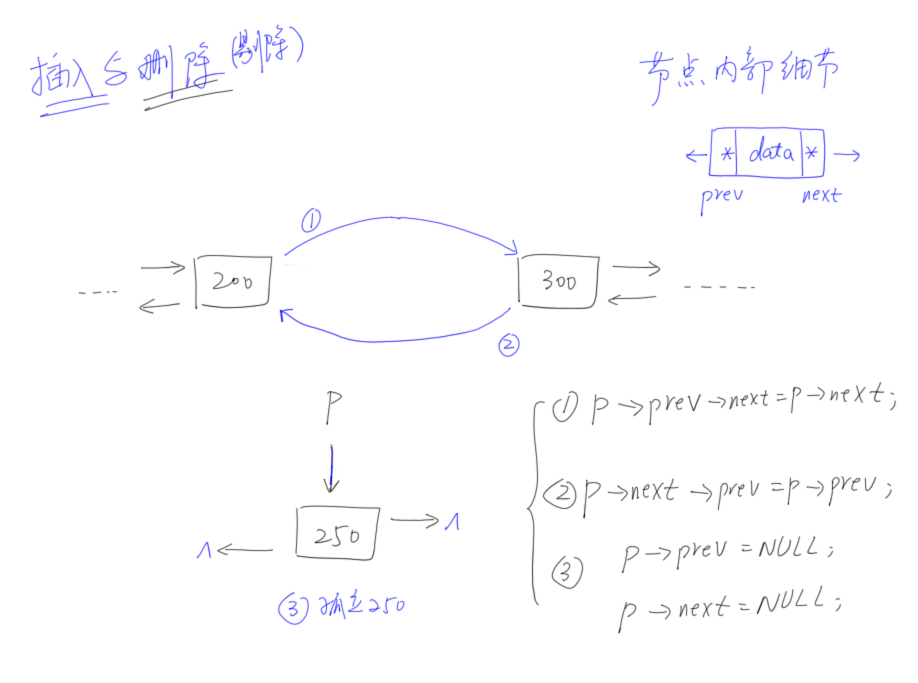 插入与删除(剔除)
节点内部细节
* data *
prev next
①
---- 200 300 -----
②
P
250
Λ Λ
③ 孤立250
① P→prev→next=P→next;
② P→next→prev=P→prev;
③ P→prev=NULL;
P→next=NULL;